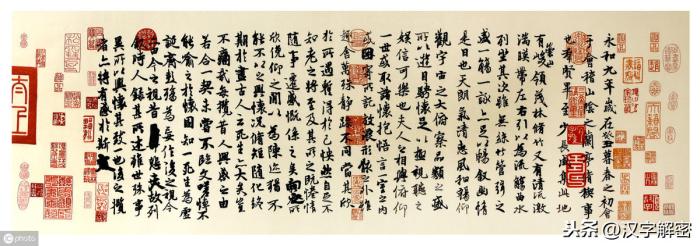 永和九年歲在癸丑暮春之初會
于會稽山陰之蘭亭脩禊事
也羣賢畢至少長咸集此地
有崇山峻領茂林脩竹又有清流激
湍暎帶左右引以為流觴曲水
列坐其次雖無絲竹管弦之
盛一觴一詠亦足以暢敘幽情
是日也天朗氣清惠風和暢仰
觀宇宙之大俯察品類之盛
所以遊目騁懷足以極視聽之
娛信可樂也夫人之相與俯仰
一世或取諸懷抱悟言一室之內
或因寄所託放浪形骸之外雖
趣舍萬殊靜躁不同當其欣
於所遇蹔得於己快然自足不
知老之將至及其所之既惓情
隨事遷感慨係之矣向之所
欣俛仰之閒以為陳迹猶不
能不以之興懷況脩短隨化終
期於盡古人云死生亦大矣豈
不痛哉每攬昔人興感之由
若合一契未嘗不臨文嗟悼不
能喻之於懷固知一死生為虛
誕齊彭殤為妄作後之視今
亦由今之視昔悲夫故列
敘時人錄其所述雖世殊事
異所以興懷其致一也後之攬
者亦將有感於斯文
photo
头条@汉字解密